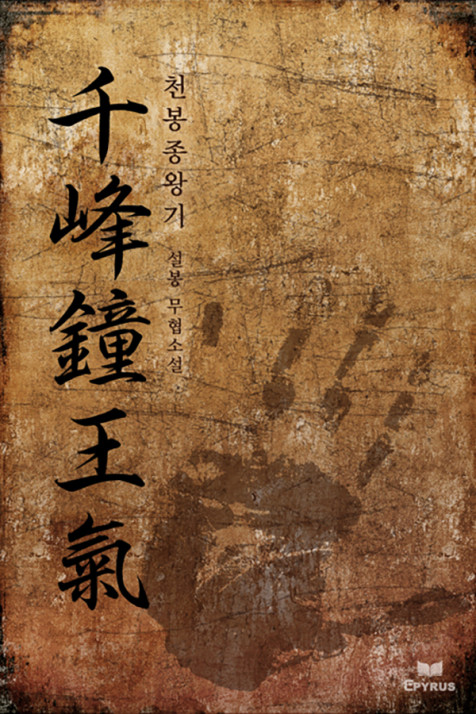 千峰鐘王氣
천봉종왕기
설봉 무협소설
EPYRUS